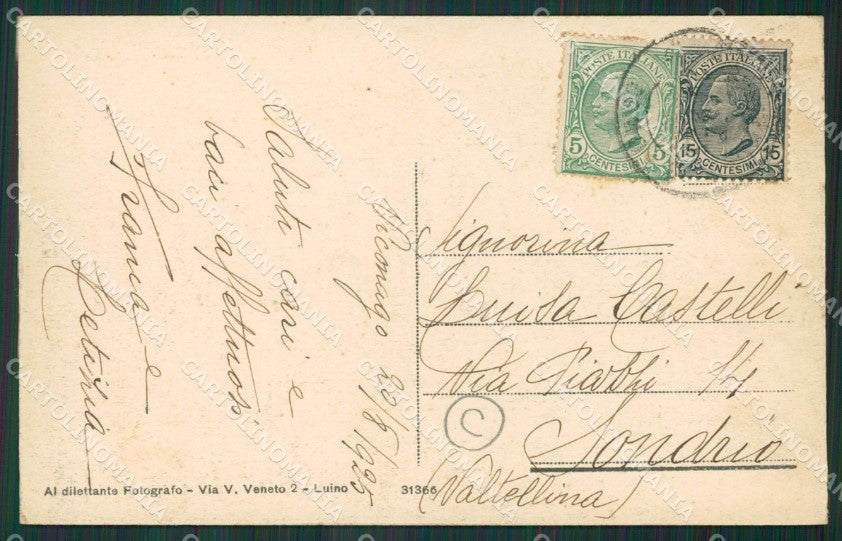 POSTE ITALIANE
5 CENTESIMI 5
POSTE ITALIANE
15 CENTESIMI 15
Saluti cari e
baci affettuosi
Franca e
Letizia
20/8/925
Signorina
Luisa Castelli
Via Piazzi 14
Sondrio
(Valtellina)
C
Al dilettante Fotografo - Via V. Veneto 2 - Luino
31366
CARTOLINOMANIA